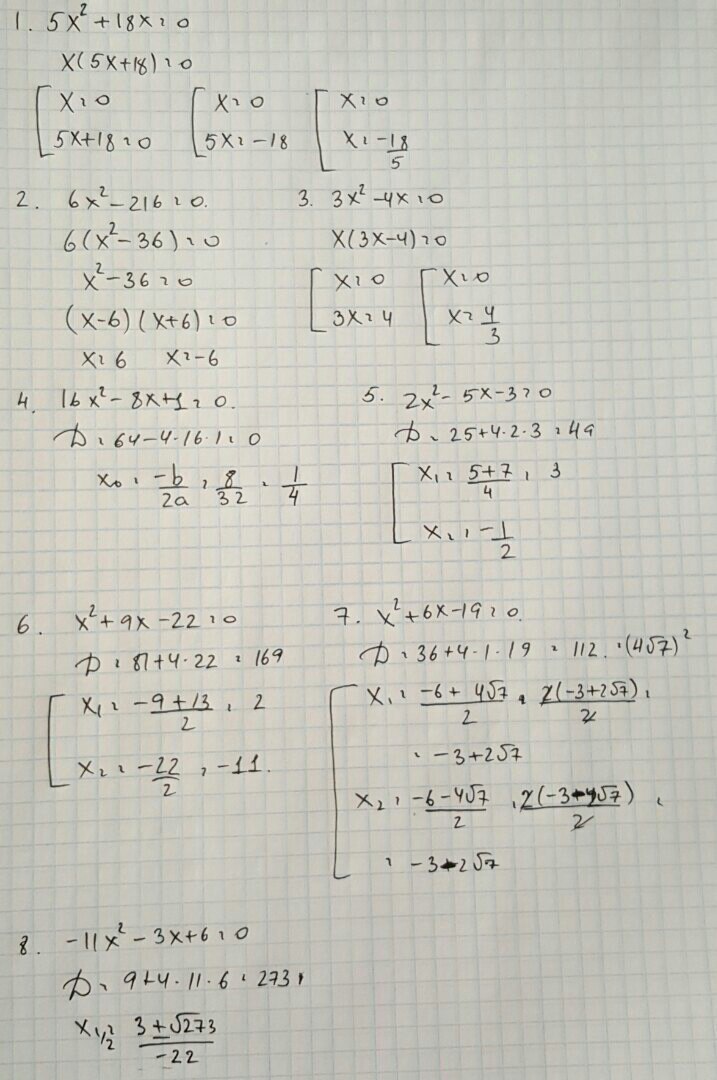 1. 5x² + 18x = 0
x(5x+18) = 0
[ x = 0 [ x = 0 [ x = 0
5x+18 = 0 5x = -18 x = -18/5
2. 6x² - 216 = 0.
6(x² - 36) = 0
x² - 36 = 0
(x-6)(x+6) = 0
x = 6 x = -6
3. 3x² - 4x = 0
x(3x-4) = 0
[ x = 0 [ x = 0
3x = 4 x = 4/3
4. 16x² - 8x + 1 = 0.
D = 64 - 4·16·1 = 0
x₀ = -b/2a = 8/32 = 1/4
5. 2x² - 5x - 3 = 0
D = 25 + 4·2·3 = 49
[ x₁ = (5+7)/4 = 3
x₂ = -1/2
6. x² + 9x - 22 = 0
D = 81 + 4·22 = 169
[ x₁ = (-9+13)/2 = 2
x₂ = -22/2 = -11.
7. x² + 6x - 19 = 0.
D = 36 + 4·1·19 = 112. = (4√7)²
[ x₁ = (-6+4√7)/2 = 2(-3+2√7)/2 =
= -3+2√7
x₂ = (-6-4√7)/2 = 2(-3-2√7)/2 =
= -3-2√7
8. -11x² - 3x + 6 = 0
D = 9 + 4·11·6 = 273
x₁/₂ = (3±√273)/-22